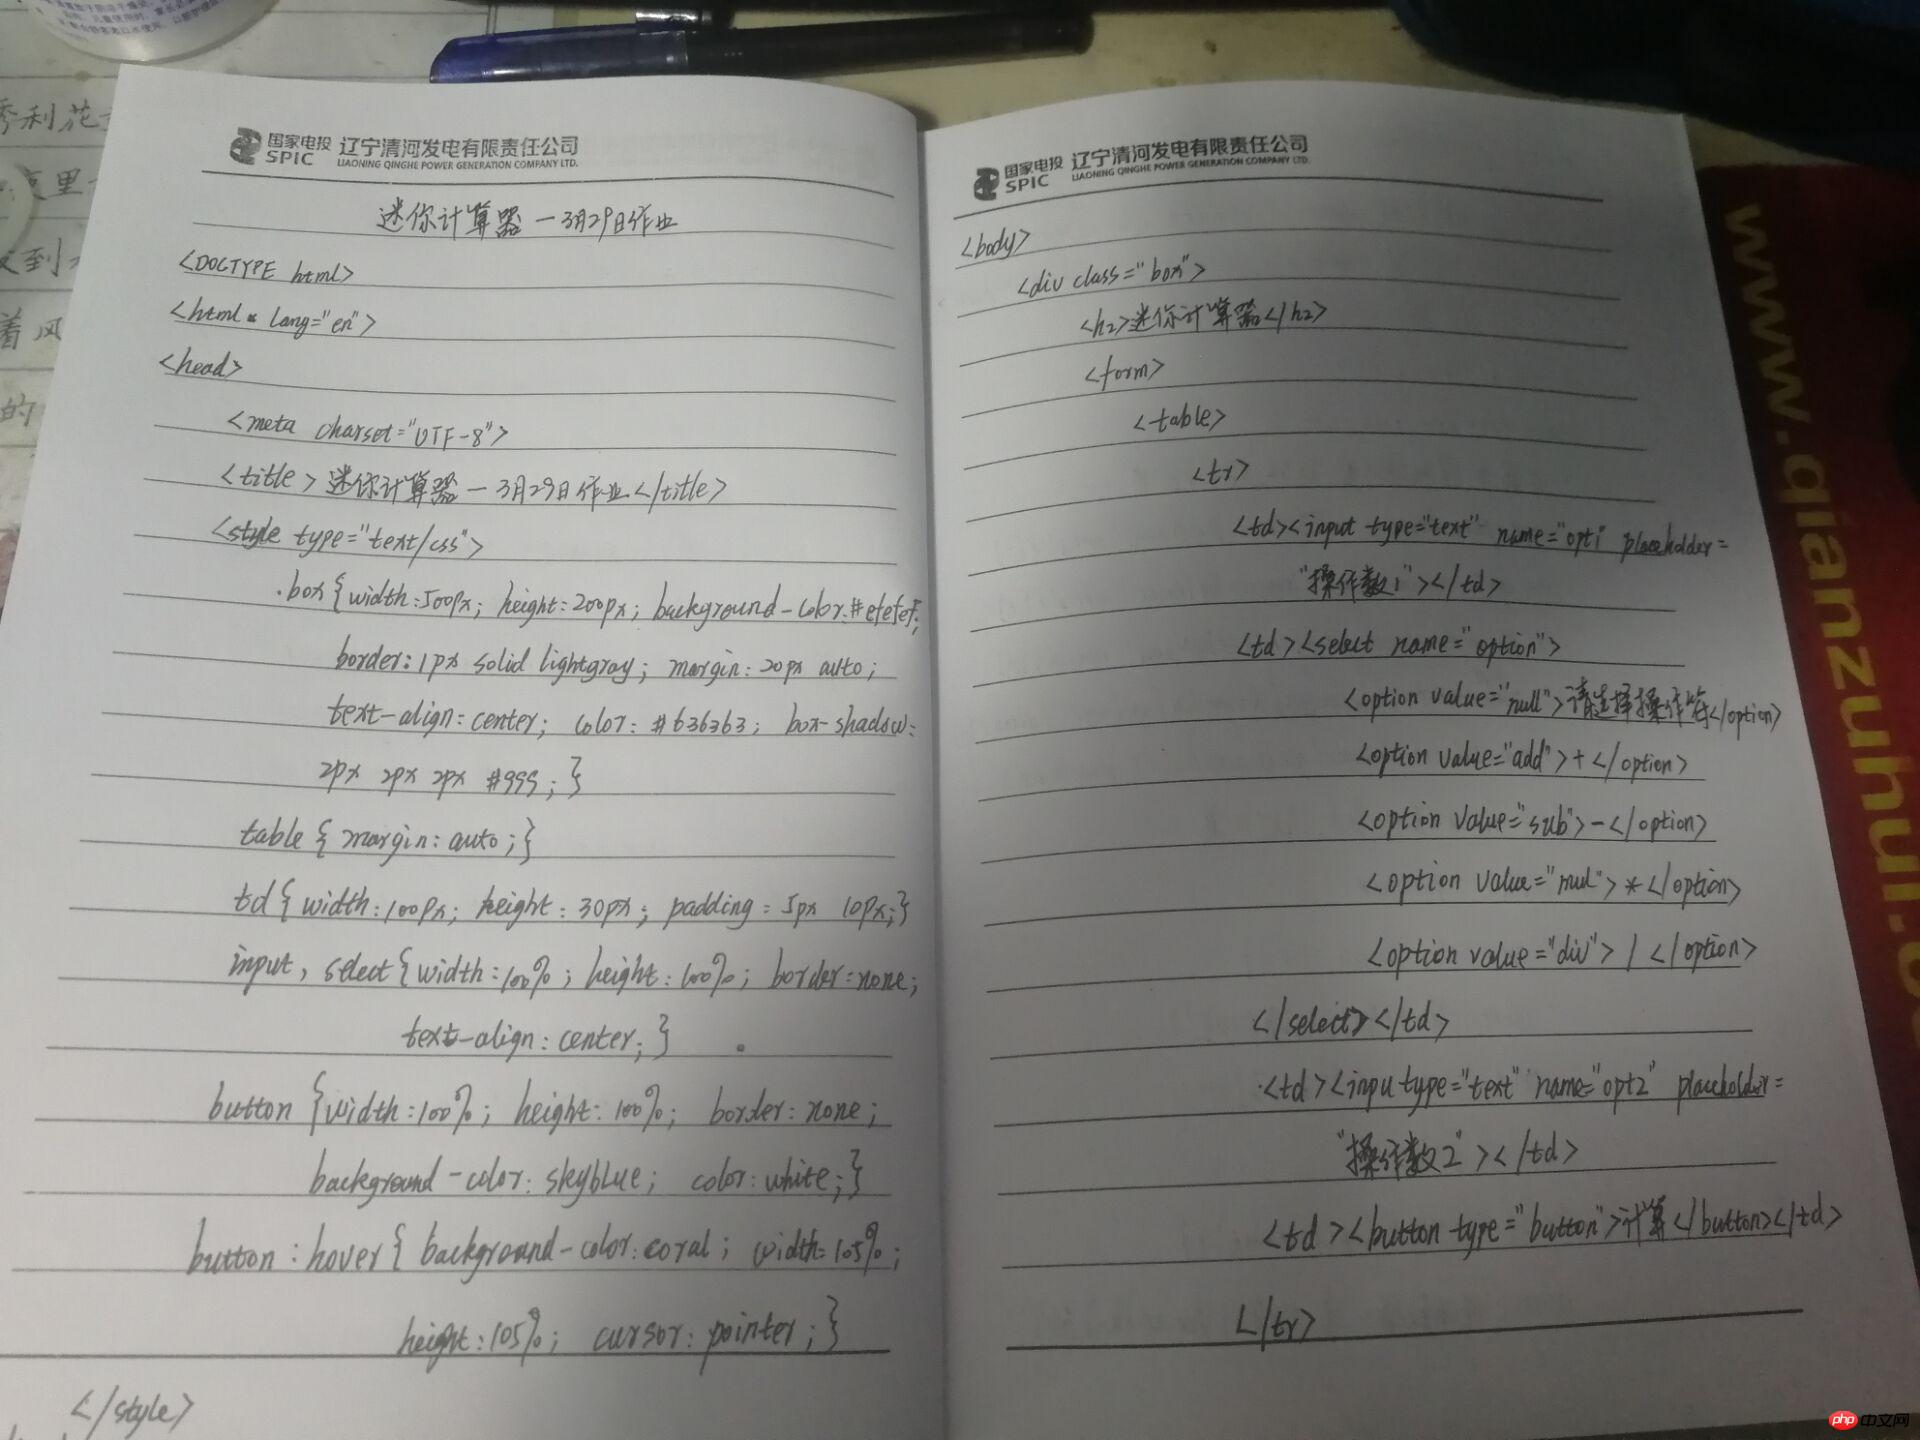 国家电投 SPIC 辽宁清河发电有限责任公司
LIAONING QINGHE POWER GENERATION COMPANY LTD.
迷你计算器—3月29日作业
<DOCTYPE html>
<html lang="en">
<head>
<meta charset="UTF-8">
<title>迷你计算器—3月29日作业</title>
<style type="text/css">
.box{width:500px; height:200px; background-color:#efefef;
border:1px solid lightgray; margin:20px auto;
text-align:center; color:#636363; box-shadow:
2px 2px 2px #999;}
table{margin:auto;}
td{width:100px; height:30px; padding:5px 10px;}
input, select{width:100%; height:100%; border:none;
text-align:center;}
button{width:100%; height:100%; border:none;
background-color:skyblue; color:white;}
button:hover{background-color:coral; width:105%;
height:105%; cursor:pointer;}
</style>
国家电投 SPIC 辽宁清河发电有限责任公司
LIAONING QINGHE POWER GENERATION COMPANY LTD.
<body>
<div class="box">
<h2>迷你计算器</h2>
<form>
<table>
<tr>
<td><input type="text" name="opt1 placeholder=
"操作数1"></td>
<td><select name="option">
<option value="null">请选择操作符</option>
<option value="add">+</option>
<option value="sub">-</option>
<option value="mul">*</option>
<option value="div">/</option>
</select></td>
<td><inpu type="text" name="opt2" placeholder=
"操作数2"></td>
<td><button type="button">计算</button></td>
</tr>
www.qianzuhui.c
秀利花
克里
到
着风
的
php 中文网